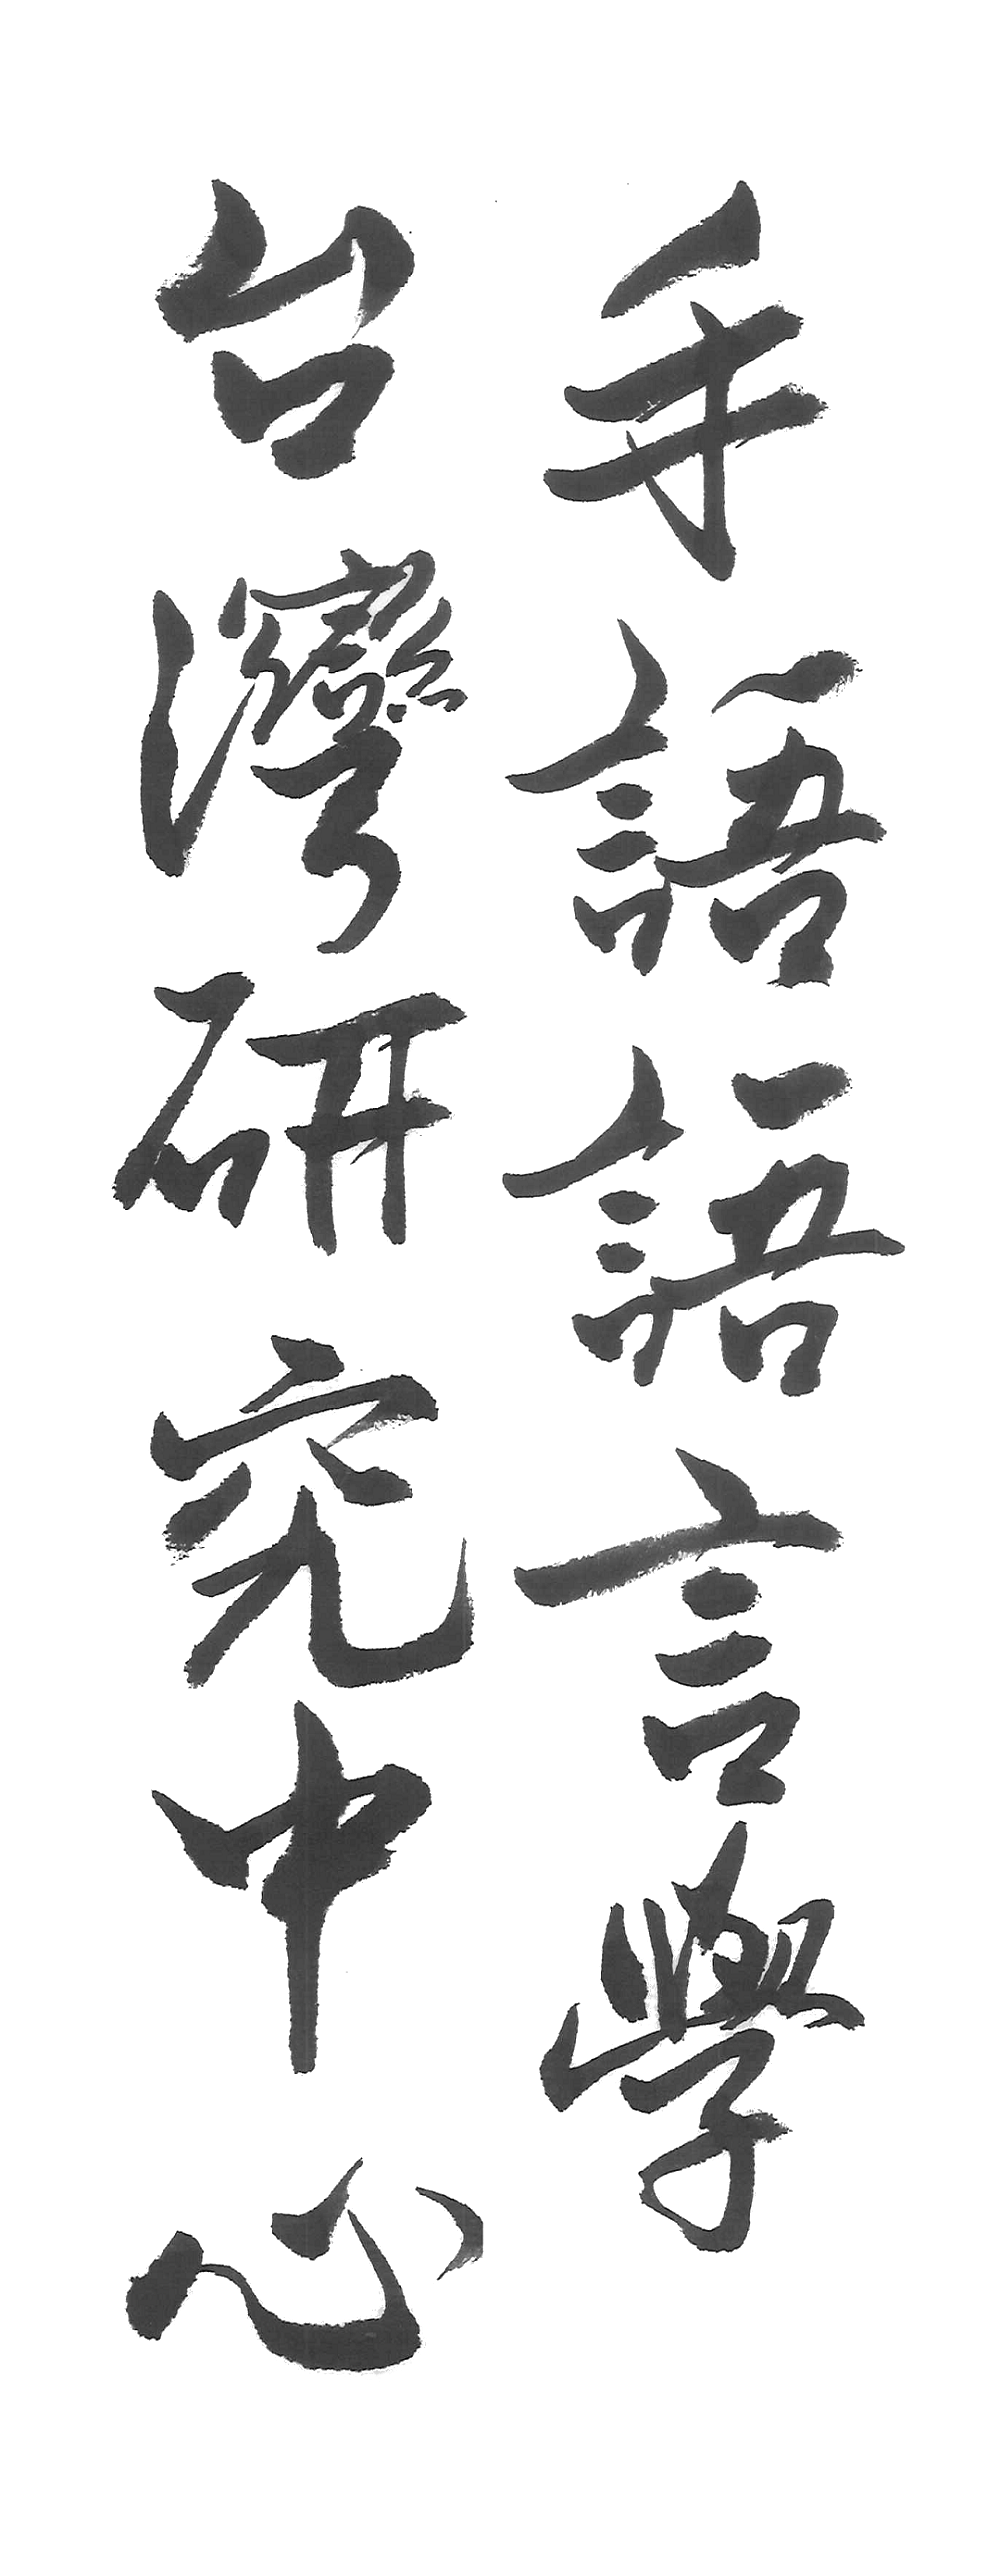 手語語言學
台灣研究中心